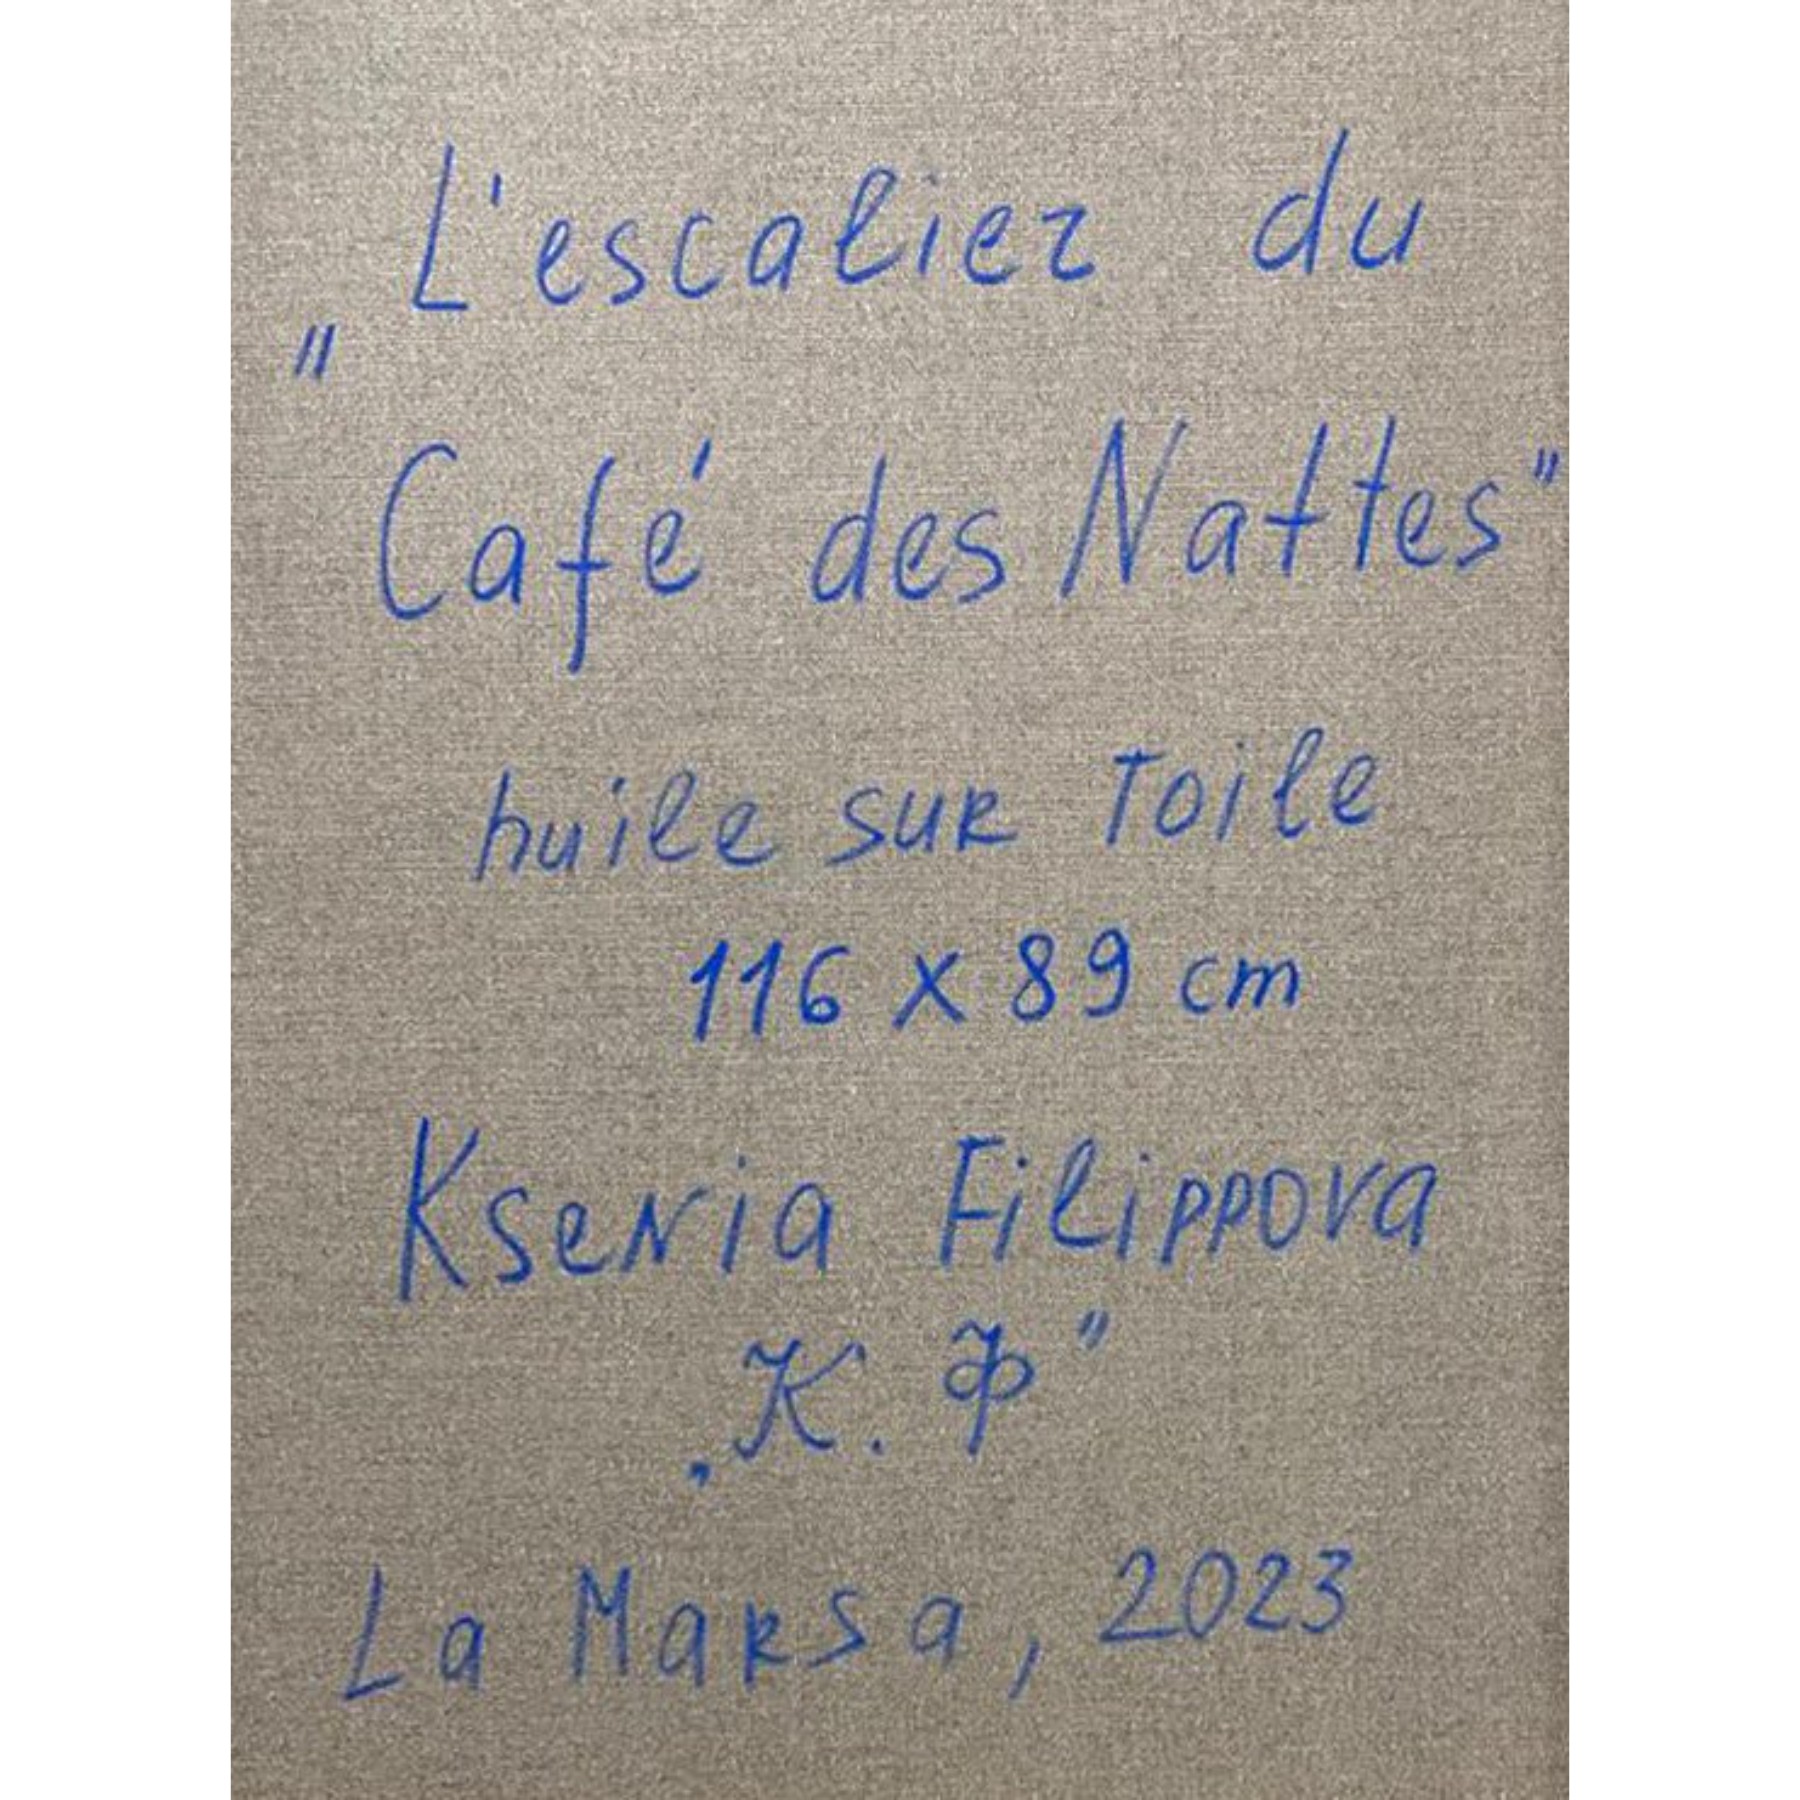 L'escalier du
"Café des Nattes"
huile sur toile
116 x 89 cm
Ksenia Filippova
„К. Ф"
La Marsa, 2023